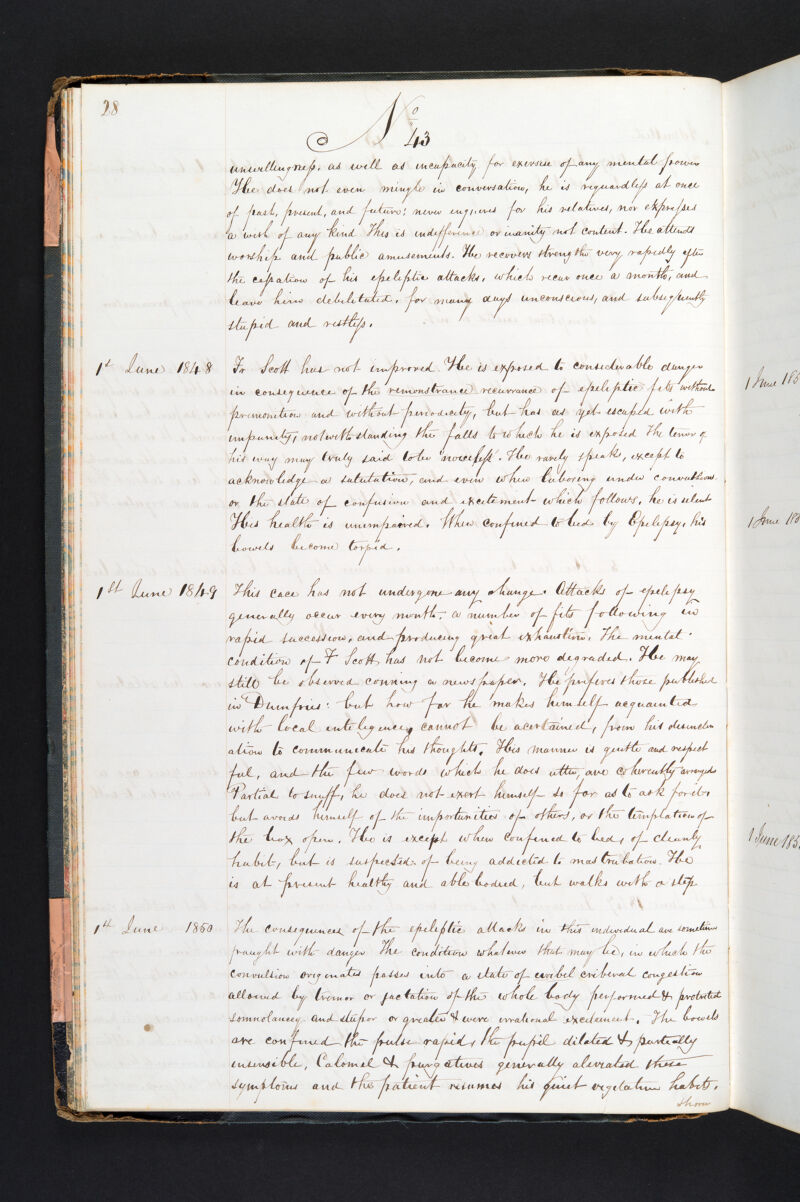 28
No 43
unwillingness, as well as incapacity for exercise of any mental power
He does not even mingle in conversation, he is reguardless at once
of past, present, and future: never enquires for his relatives, nor expresses
a wish of any kind This is indefference or inanity not content. He attends
worship and public amusements. He recovers strength very rapidly after
the cessation of his epileptic attacks, which recur once a month, and
leave him debilitated, for many days unconscious, and subsequently
stupid and restless.
1st June 1848 Scott has not improved He is exposed to considerable danger
in consequence of the remonstrance recurrance of epileptic fits without
premonition and without periodicity, but has as yet escaped with
impunity, notwithstanding the falls to which he is exposed The tenor of
his way may truly said to be noiseless. He rarely speaks, except to
acknowledge a salutation, and even when laboring under convulsions
or the state of confusion and excitement which follows, he is silent
His health is unimpaired. When confined to bed by Epilepsy, his
bowels become torpid.
1st June 1849 This case has not undergone any change. Attacks of epilepsy
generally occur every month, a number of fits following in
rapid succession, and producing great exhaustion. The mental
condition of F Scott, has not become more degraded. He may
still be observed conning a newspaper. He preferes those published
in Dumfries: but how far he makes himself acquainted
with local inteligence, cannot be acertained, from his disinclin
ation to communicate his thoughts. His manner is gentle and respect
ful, and the few words which he does utter, are coherently arranged
Partial to snuff, he does not exert himself so far as to ask for it,
but avoids himself of the importunities of others, or the temptation of
the box open. He is except when confined to bed, of cleanly
habit, but is suspected of being addicted to mastrubation. He
is at present healthy and able bodied, but walks with a stop
1st June 1850 The consequences of the epileptic attacks in this individual are sometimes
fraught with danger The condition whatever that may be, in which the
convulsion originates passes into a state of criberal congestion
allowed by tremor or jactation of the whole body performed & protracted
somnolancey and stupor or greater & were irrational excitement. The bowels
are confined the pulse rapid, the pupil dilated & partially
insensible, Calomel & purgatives generally aleviated these
symptoms and the patient resumes his quiet vegetative habits.
1 June 185
1 June 185
1 June 185